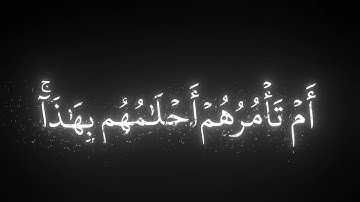 أَمۡ تَأۡمُرُهُمۡ أَحۡلَٰمُهُم بِهَٰذَآۚ